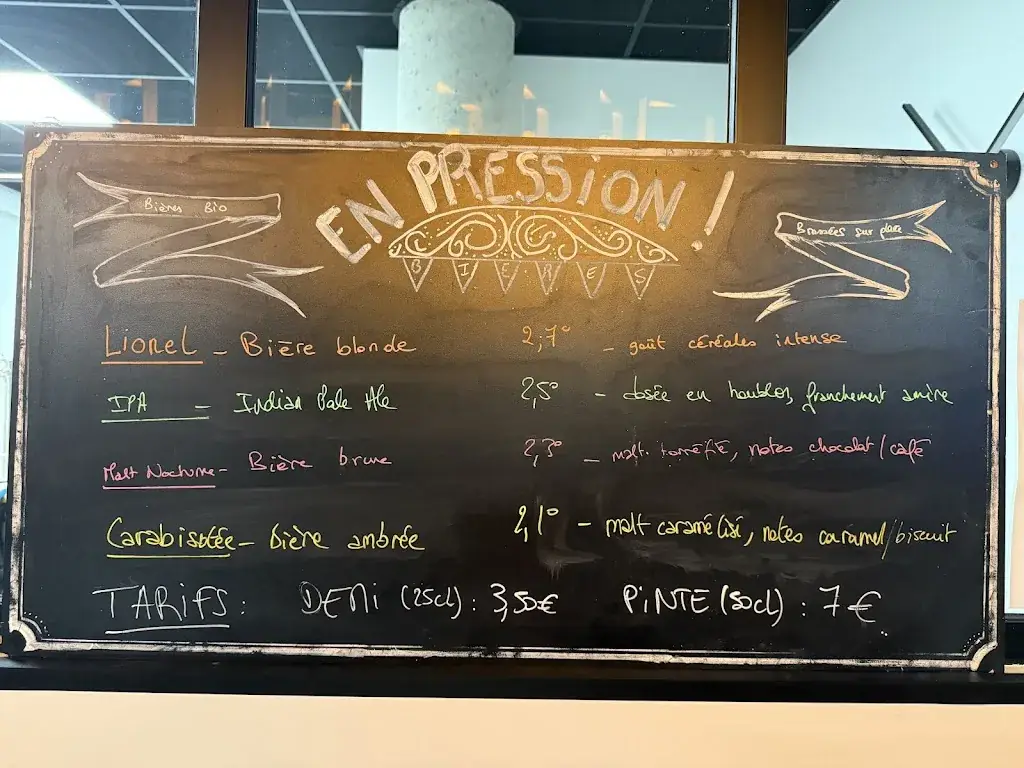 EN PRESSiON !
Bières Bio
BIERES
Brassées sur place
Lionel - Bière blonde 2,7° - goût céréales intense
IPA - Indian Pale Ale 2,5° - dosée en houblon, franchement amère
Malt Nocturne - Bière brune 2,3° - malt torréfié, notes chocolat/café
Carabistée - bière ambrée 2,1° - malt caramélisé, notes caramel/biscuit
TARIFS : DEMi (25cl) : 3,50€ PiNTE (50cl) : 7€